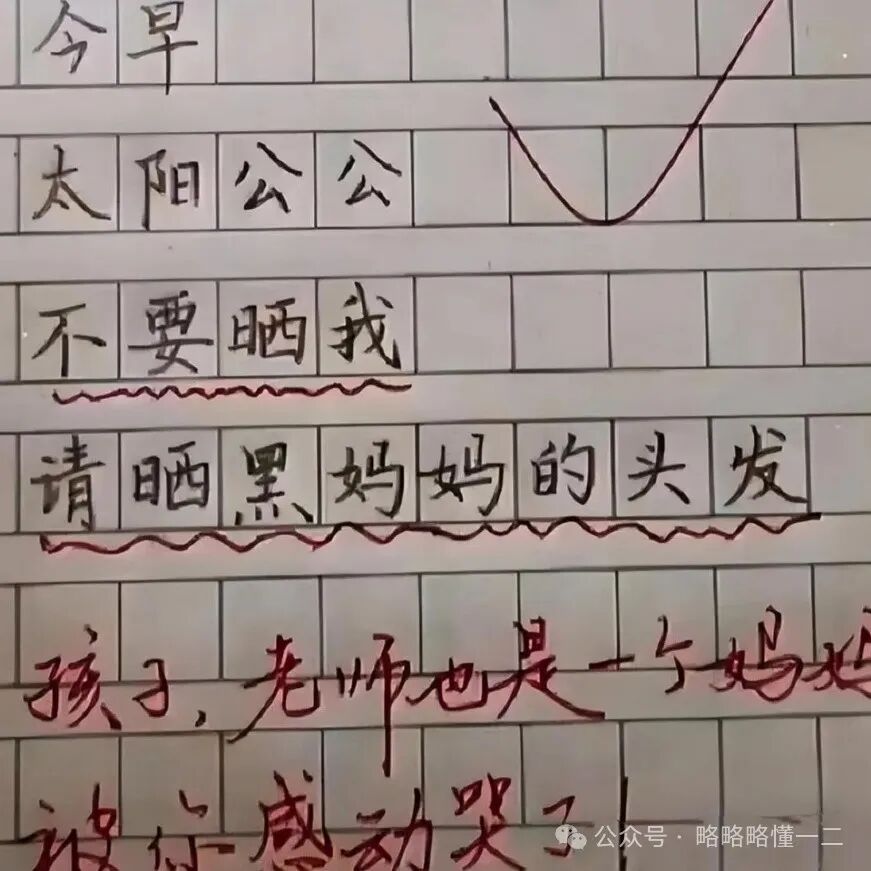 今早
太阳公公
不要晒我
请晒黑妈妈的头发
孩子,老师也是一个妈妈
被你感动哭了!
公众号·略略略懂一二